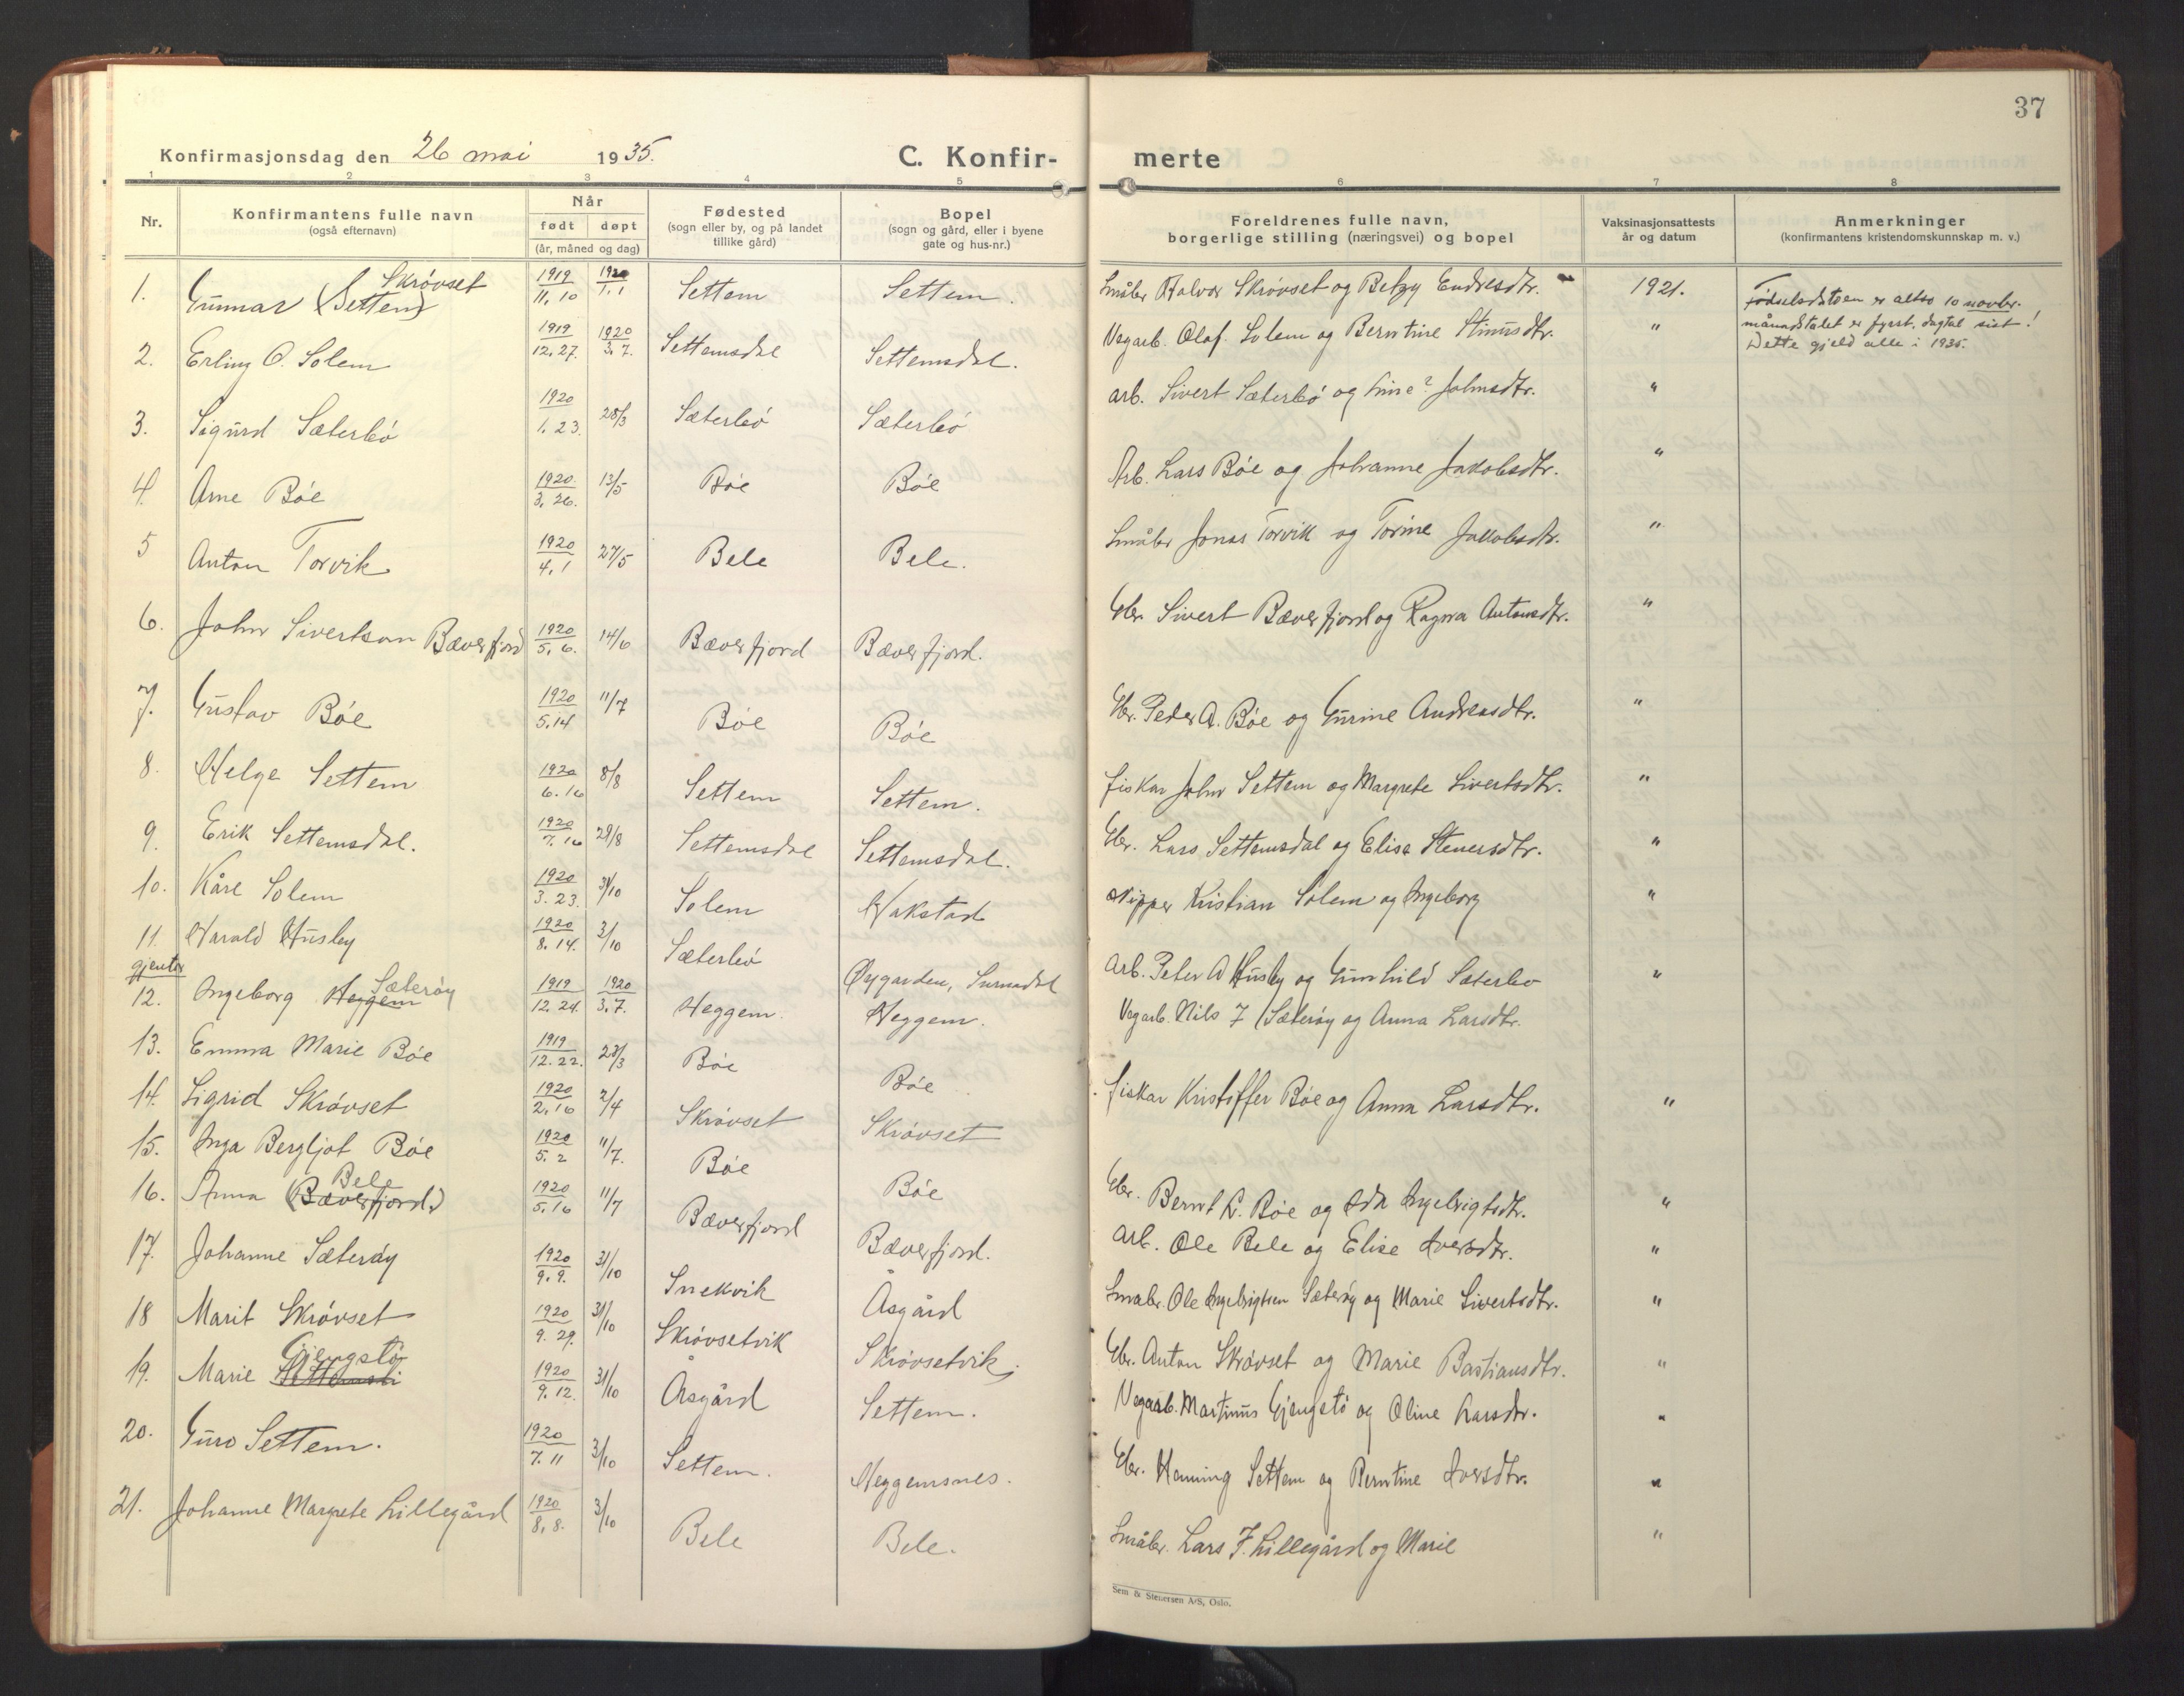 37
Konfirmasjonsdag den 26 mai 1935. C. Konfir- merte
1 2 3 4 5 6 7 8
Nr. Konfirmantens fulle navn (også efternavn) Når født døpt (år, måned og dag) Fødested (sogn eller by, og på landet tillike gård) Bopel (sogn og gård, eller i byene gate og hus-nr.) Foreldrenes fulle navn, borgerlige stilling (næringsvei) og bopel Vaksinasjonsattests år og datum Anmerkninger (konfirmantens kristendomskunnskap m. v.)
1. Gunnar (Settem) Skrövset 1919 11, 10 1920 1.1 Settem Settem. Småbr Halvor Skrövset og Betzy Endresdtr. 1921. Födselsdatoen er altso 10 novbr. månadstalet er fyrst, dagtal sist! Dette gjeld alle i 1935.
2. Erling O. Solem 1919 12, 27. 1920 3. 7. Settemsdal Settemsdal. Vegarb. Olaf Solem og Berntine Stinusdtr. "
3. Sigurd Sæterbö 1920 1. 23. 28/3 Sæterbö Sæterbö arb. Sivert Sæterbö og Line? Johnsdtr. "
4. Arne Böe 1920. 3, 26. 13/5 Böe Böe Arb. Lars Böe og Johanne Jakobsdtr. "
5 Anton Torvik 1920 4, 1 27/5 Bele Bele. Småbr Jonas Torvik og Torine Jakobsdtr. "
6. John Sivertson Bæverfjord 1920 5, 6. 14/6 Bæverfjord Bæverfjord. Gbr. Sivert Bæverfjord og Ragna Antonsdtr. "
7. Gustav Böe 1920 5, 14 11/7 Böe Böe Gbr. Peder A. Böe og Gurine Andreasdtr. "
8. Helge Settem 1920 6. 16 8/8 Settem Settem. fiskar John Settem og Margrete Sivertsdtr. "
9. Erik Settemsdal. 1920 7. 16 29/8 Settemsdal Settemsdal. Gbr. Lars Settemsdal og Elise Stenersdtr. "
10. Kåre Solem 1920 3. 23. 31/10 Solem Hakstad skipper Kristian Solem og Ingeborg "
11. Harald Husby 1920 8. 14. 3/10 Sæterbö Öygarden, Surnadal Arb. Peter A Husby og Gunhild Sæterbo "
gjenter
12. Ingeborg Heggem Sæteröy 1919 12. 24. 1920 3. 7. Heggem. Heggem. Vegarb. Nils J Sæteröy og Anna Larsdtr.
13. Emma Marie Böe 1919 12. 22. 28/3 Böe Böe fiskar Kristoffer Böe og Anna Larsdtr. "
14. Sigrid Skrövset 1920 2, 16 2/4 Skrövset Skrövset
15. Inga Bergljot Böe 1920 5. 2 11/7. Böe Böe Gbr. Bernt L. Böe og Ida Ingebrigtsdtr. "
16. Anna (Bæverfjord) Bele 1920 5, 16 11/7 Bæverfjord Bæverfjord. arb. Ole Bele og Elise Iversdtr. "
17. Johanne Sæteröy 1920 9. 9. 31/10 Snekvik Åsgård Småbr. Ole Ingebrigtsen Sæteröy og Marie Sivertsdtr. "
18 Marit Skrövset 1920 9. 29. 31/10 Skrövsetvik Skrövsetvik. Gbr. Anton Skrövset og Marie Bastiansdtr. "
19. Marie Gjengstö 1920 9. 12. 31/10 Åsgård Settem. Vegarb. Martinus Gjengstö og Oline Larsdtr. "
20. Guro Settem. 1920 7. 11 3/10 Settem. Heggemsnes. Gbr. Henning Settem og Berntine Iversdtr. "
21. Johanne Margrete Lillegård 1920 8, 8. 3/10 Bele Bele. Småbr. Lars J. Lillegård og Marie "
Sem & Stenersen A/S, Oslo.